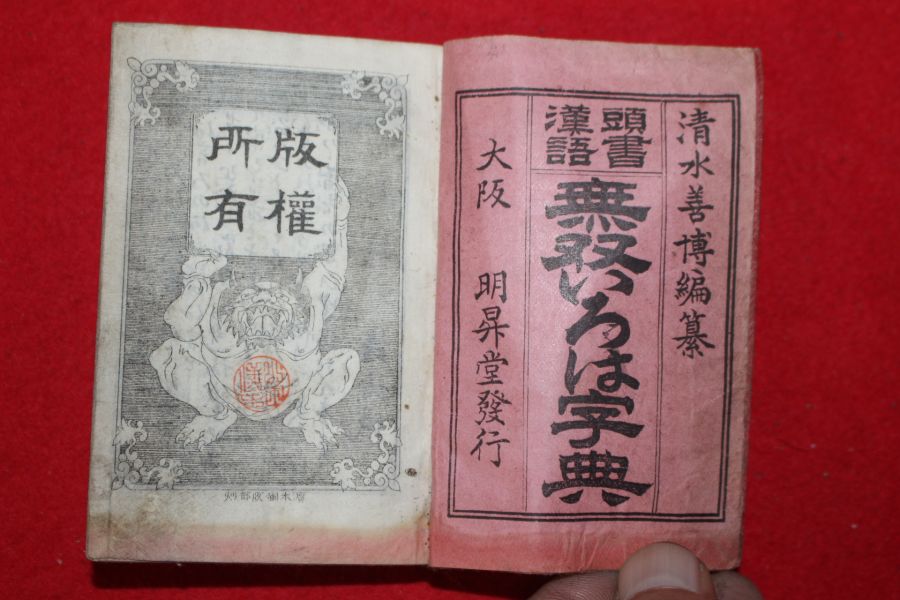 清水善博編纂
頭書
漢語
無双いろは字典
大阪 明昇堂發行
版權
所有